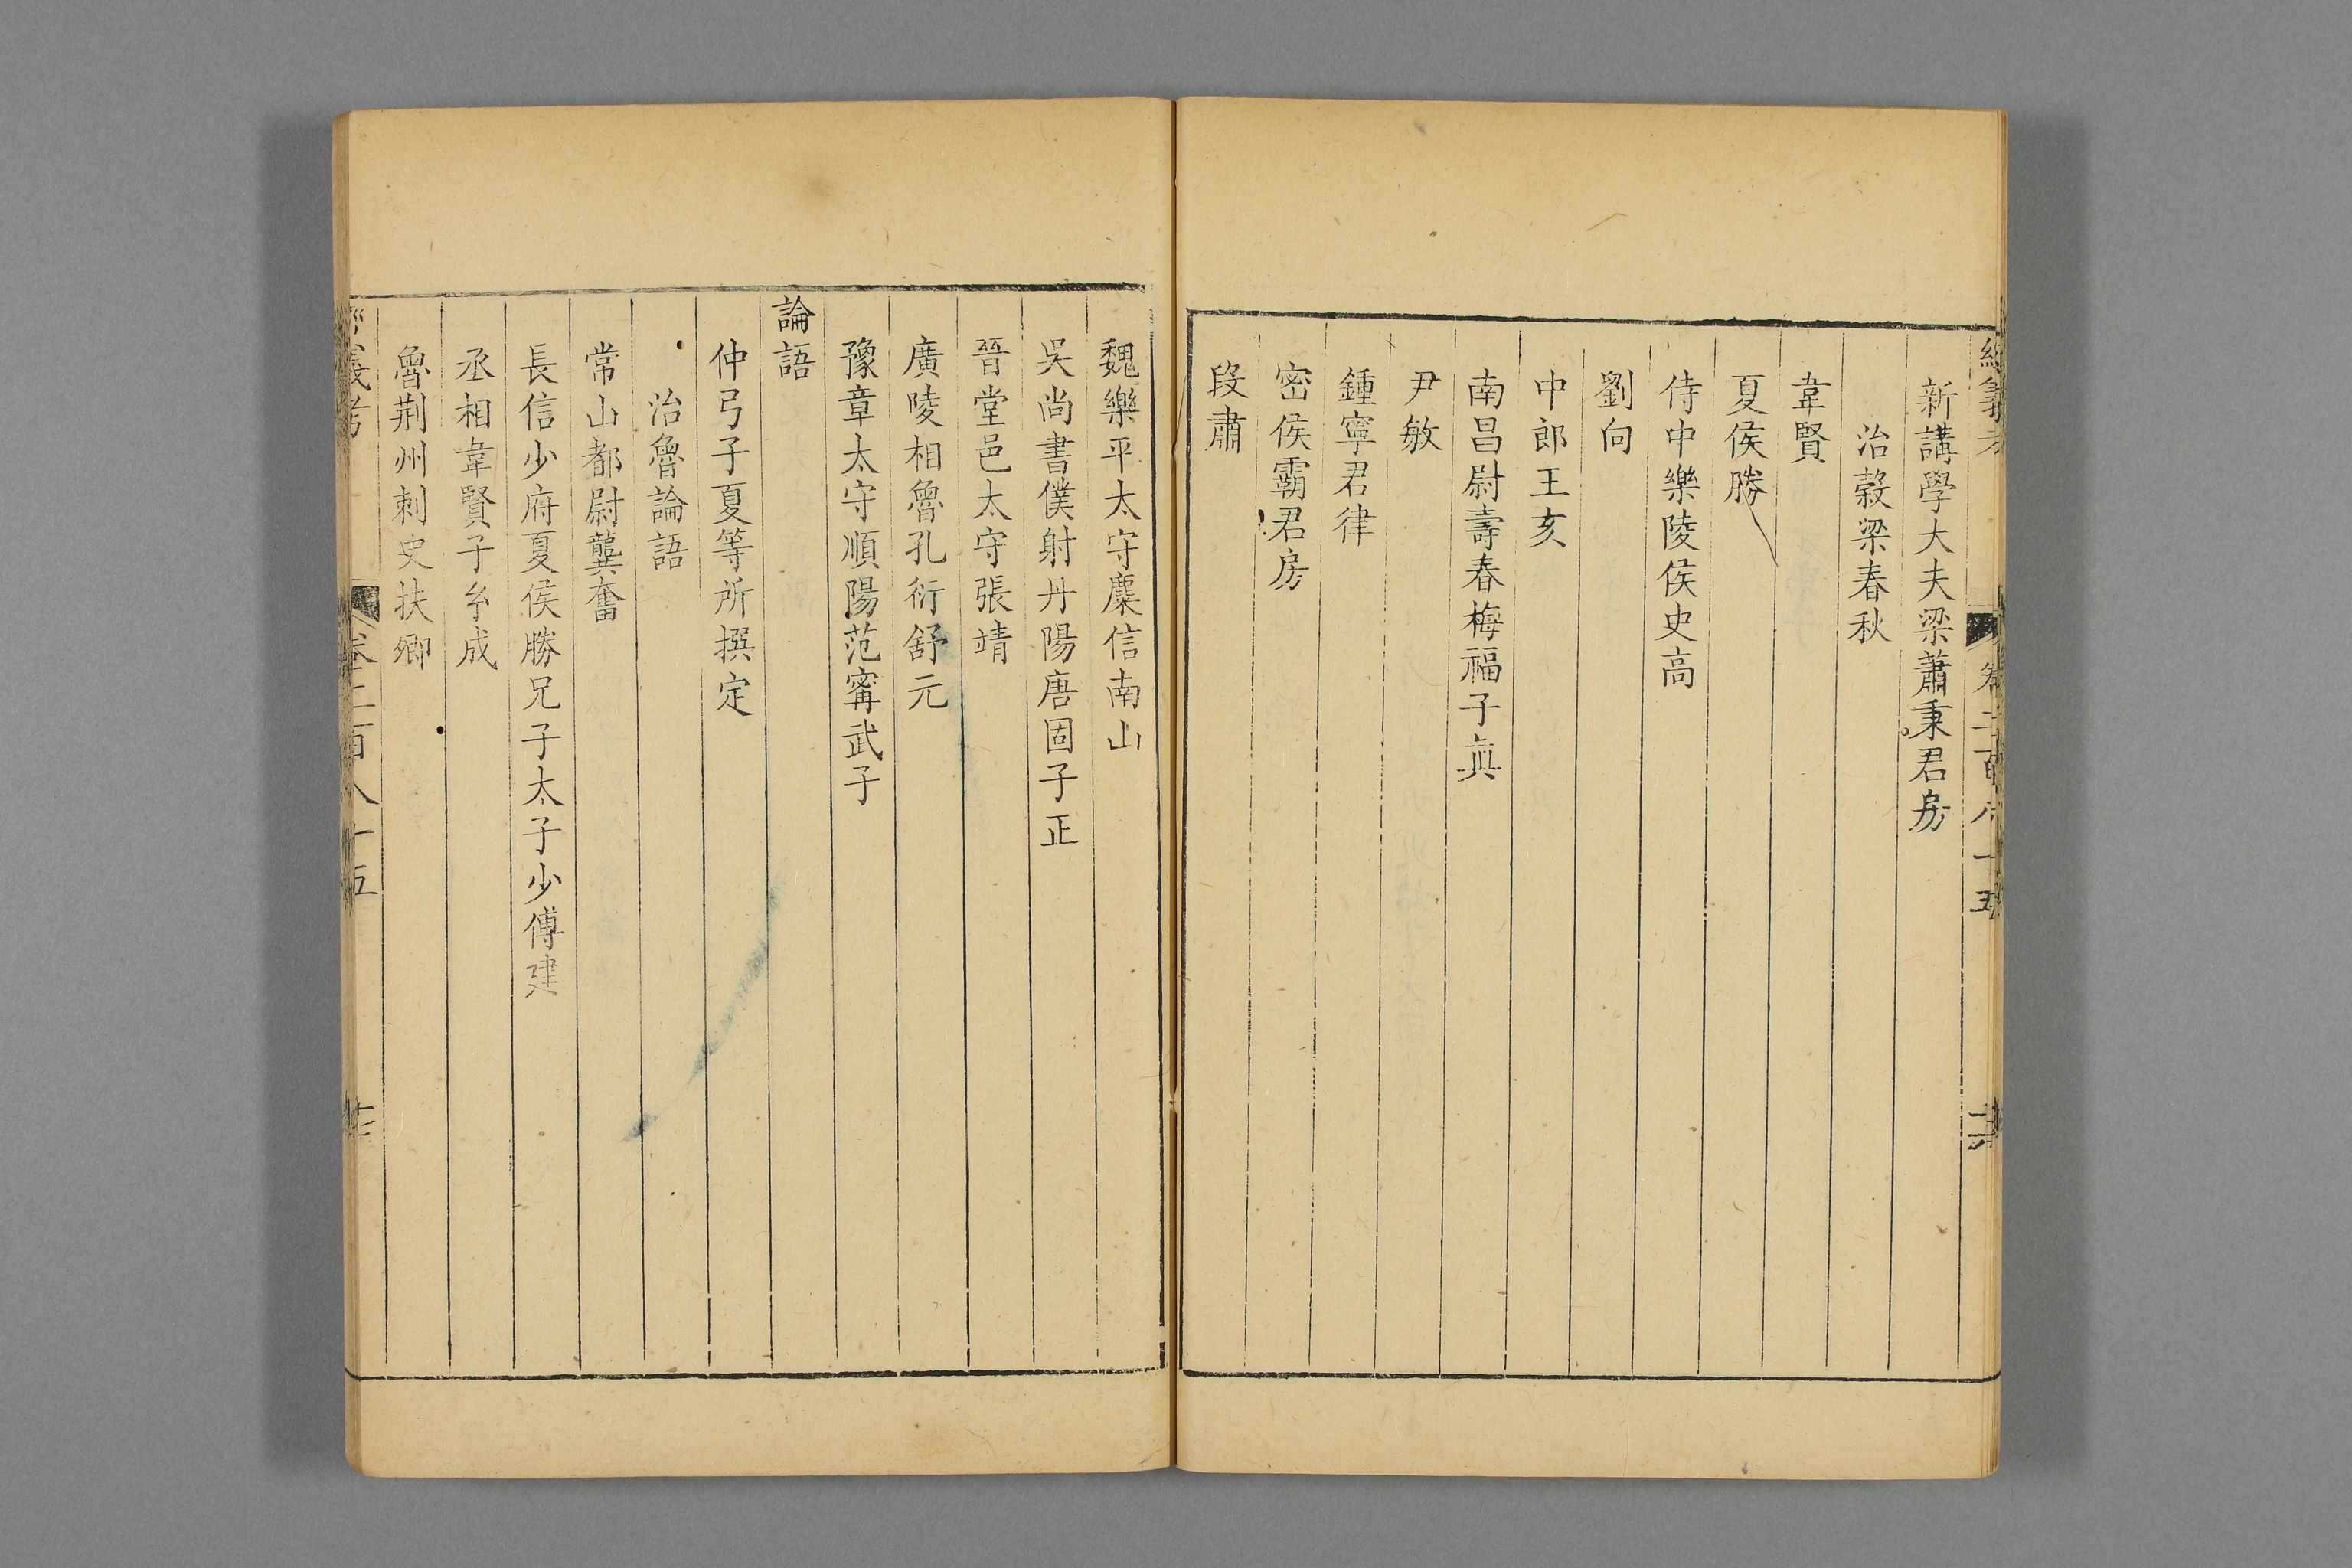 經義考 卷二百八十五
新講學大夫梁蕭秉君房
治穀梁春秋
韋賢
夏侯勝
侍中樂陵侯史高
劉向
中郎王亥
南昌尉壽春梅福子真
尹敏
鍾寧君律
密侯霸君房
段肅
魏樂平太守麋信南山
吳尚書僕射丹陽唐固子正
晉堂邑太守張靖
廣陵相魯孔衍舒元
豫章太守順陽范甯武子
論語
仲弓子夏等所撰定
治魯論語
常山都尉龔奮
長信少府夏侯勝兄子太子少傅建
丞相韋賢子𤣥成
魯荆州刺史扶卿
經義考 卷二百八十五